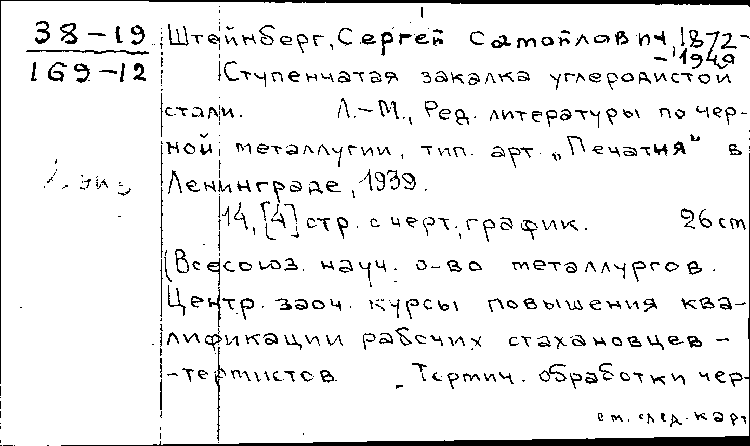 38-19
169-12
Штейнберг, Сергей Самойлович, 1872-
-1949
Ступенчатая закалка углеродистой
стали. Л.-М., Ред. литературы по чер-
ной металлугии, тип. арт. „Печатня" в
Ленинграде, 1939.
1 экз
14, [4] стр. с черт., график. 26 cm
(Всесоюз. науч. о-во металлургов.
Центр. заоч. курсы повышения ква-
лификации рабочих стахановцев -
-термистов Термич. обработки чер-
см. след. карт